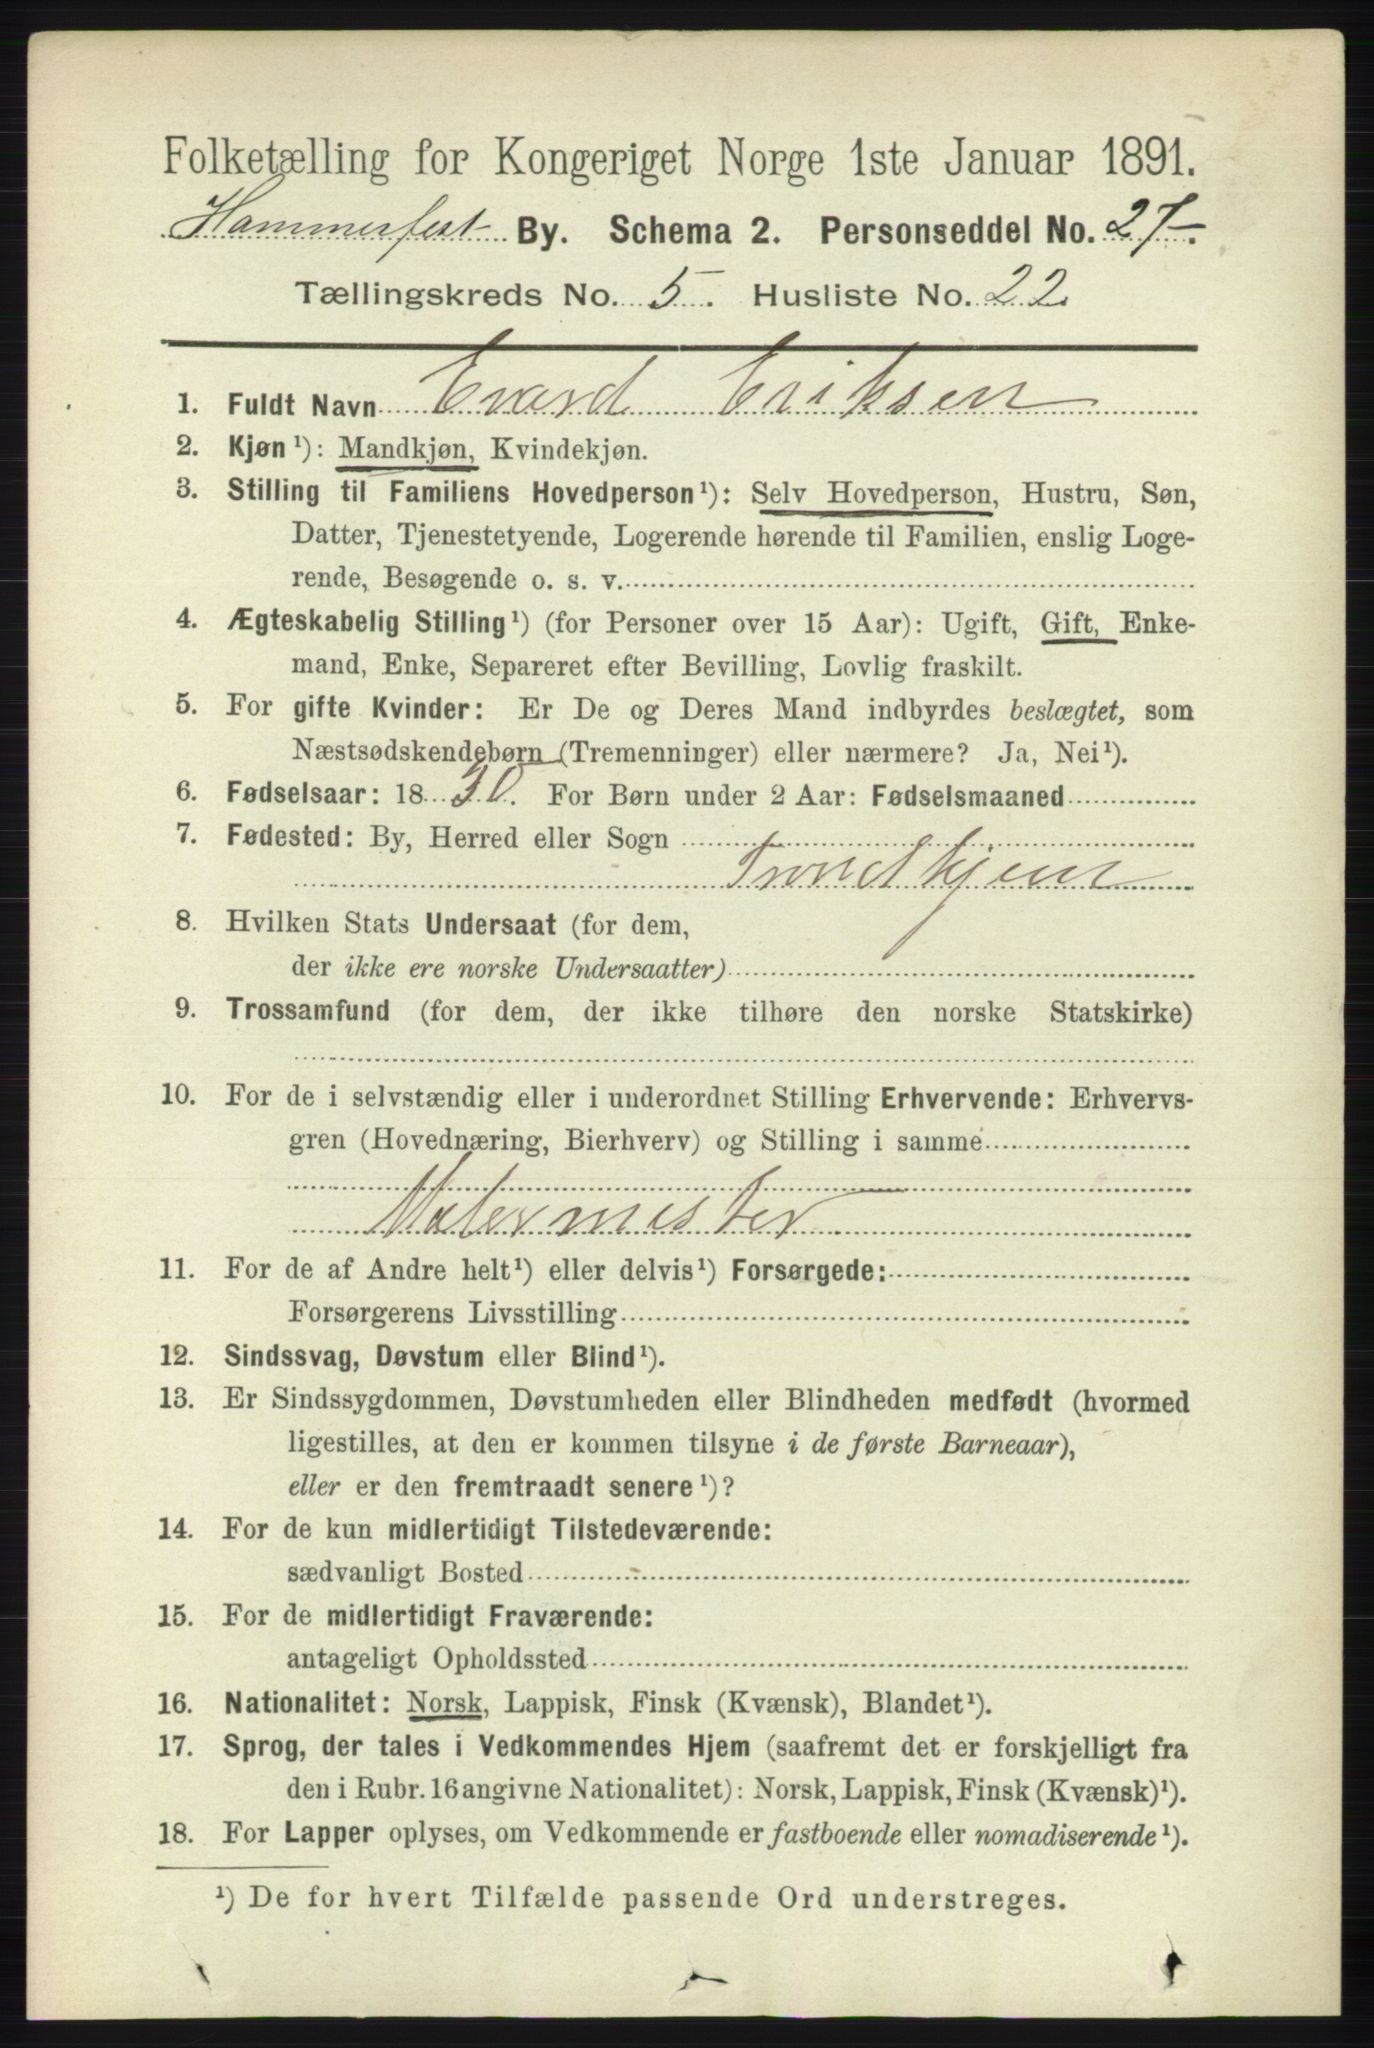 Folketælling for Kongeriget Norge 1ste Januar 1891.
Hammerfest By. Schema 2. Personseddel No. 27.
Tællingskreds No. 5. Husliste No. 22.
1. Fuldt Navn Evard Eriksen
2. Kjøn¹): Mandkjøn, Kvindekjøn.
3. Stilling til Familiens Hovedperson¹): Selv Hovedperson, Hustru, Søn,
Datter, Tjenestetyende, Logerende hørende til Familien, enslig Loge-
rende, Besøgende o. s. v.
4. Ægteskabelig Stilling¹) (for Personer over 15 Aar): Ugift, Gift, Enke-
mand, Enke, Separeret efter Bevilling, Lovlig fraskilt.
5. For gifte Kvinder: Er De og Deres Mand indbyrdes beslægtet, som
Næstsødskendebørn (Tremenninger) eller nærmere? Ja, Nei¹).
6. Fødselsaar: 1830. For Børn under 2 Aar: Fødselsmaaned
7. Fødested: By, Herred eller Sogn
Trondhjem
8. Hvilken Stats Undersaat (for dem,
der ikke ere norske Undersaatter)
9. Trossamfund (for dem, der ikke tilhøre den norske Statskirke)
10. For de i selvstændig eller i underordnet Stilling Erhvervende: Erhvervs-
gren (Hovednæring, Bierhverv) og Stilling i samme
Malermester
11. For de af Andre helt¹) eller delvis¹) Forsørgede:
Forsørgerens Livsstilling
12. Sindssvag, Døvstum eller Blind¹).
13. Er Sindssygdommen, Døvstumheden eller Blindheden medfødt (hvormed
ligestilles, at den er kommen tilsyne i de første Barneaar),
eller er den fremtraadt senere¹)?
14. For de kun midlertidigt Tilstedeværende:
sædvanligt Bosted
15. For de midlertidigt Fraværende:
antageligt Opholdssted
16. Nationalitet: Norsk, Lappisk, Finsk (Kvænsk), Blandet¹).
17. Sprog, der tales i Vedkommendes Hjem (saafremt det er forskjelligt fra
den i Rubr. 16 angivne Nationalitet): Norsk, Lappisk, Finsk (Kvænsk)¹).
18. For Lapper oplyses, om Vedkommende er fastboende eller nomadiserende¹).
¹) De for hvert Tilfælde passende Ord understreges.